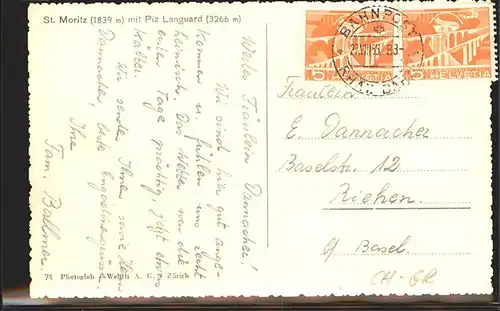 St. Moritz (1839 m) mit Piz Languard (3266 m)
Wertes Fräulein Dannacher!
Wir sind hier gut ange-
kommen u. fühlen uns recht
heimisch. Das Wetter war die
ersten Tage prächtig, jetzt etwas
kälter.
Wir senden Ihnen sowie Herrn
Dannacher, beste Engadinergrüsse
Ihre
Fam. Ballmer
74 Photoglob-Wehrli A. G., Zürich
BAHNPOST
5 HELVETIA
5 HELVETIA
Fräulein
E. Dannacher
Baselstr. 12
Riehen.
b/ Basel.
CH-GR